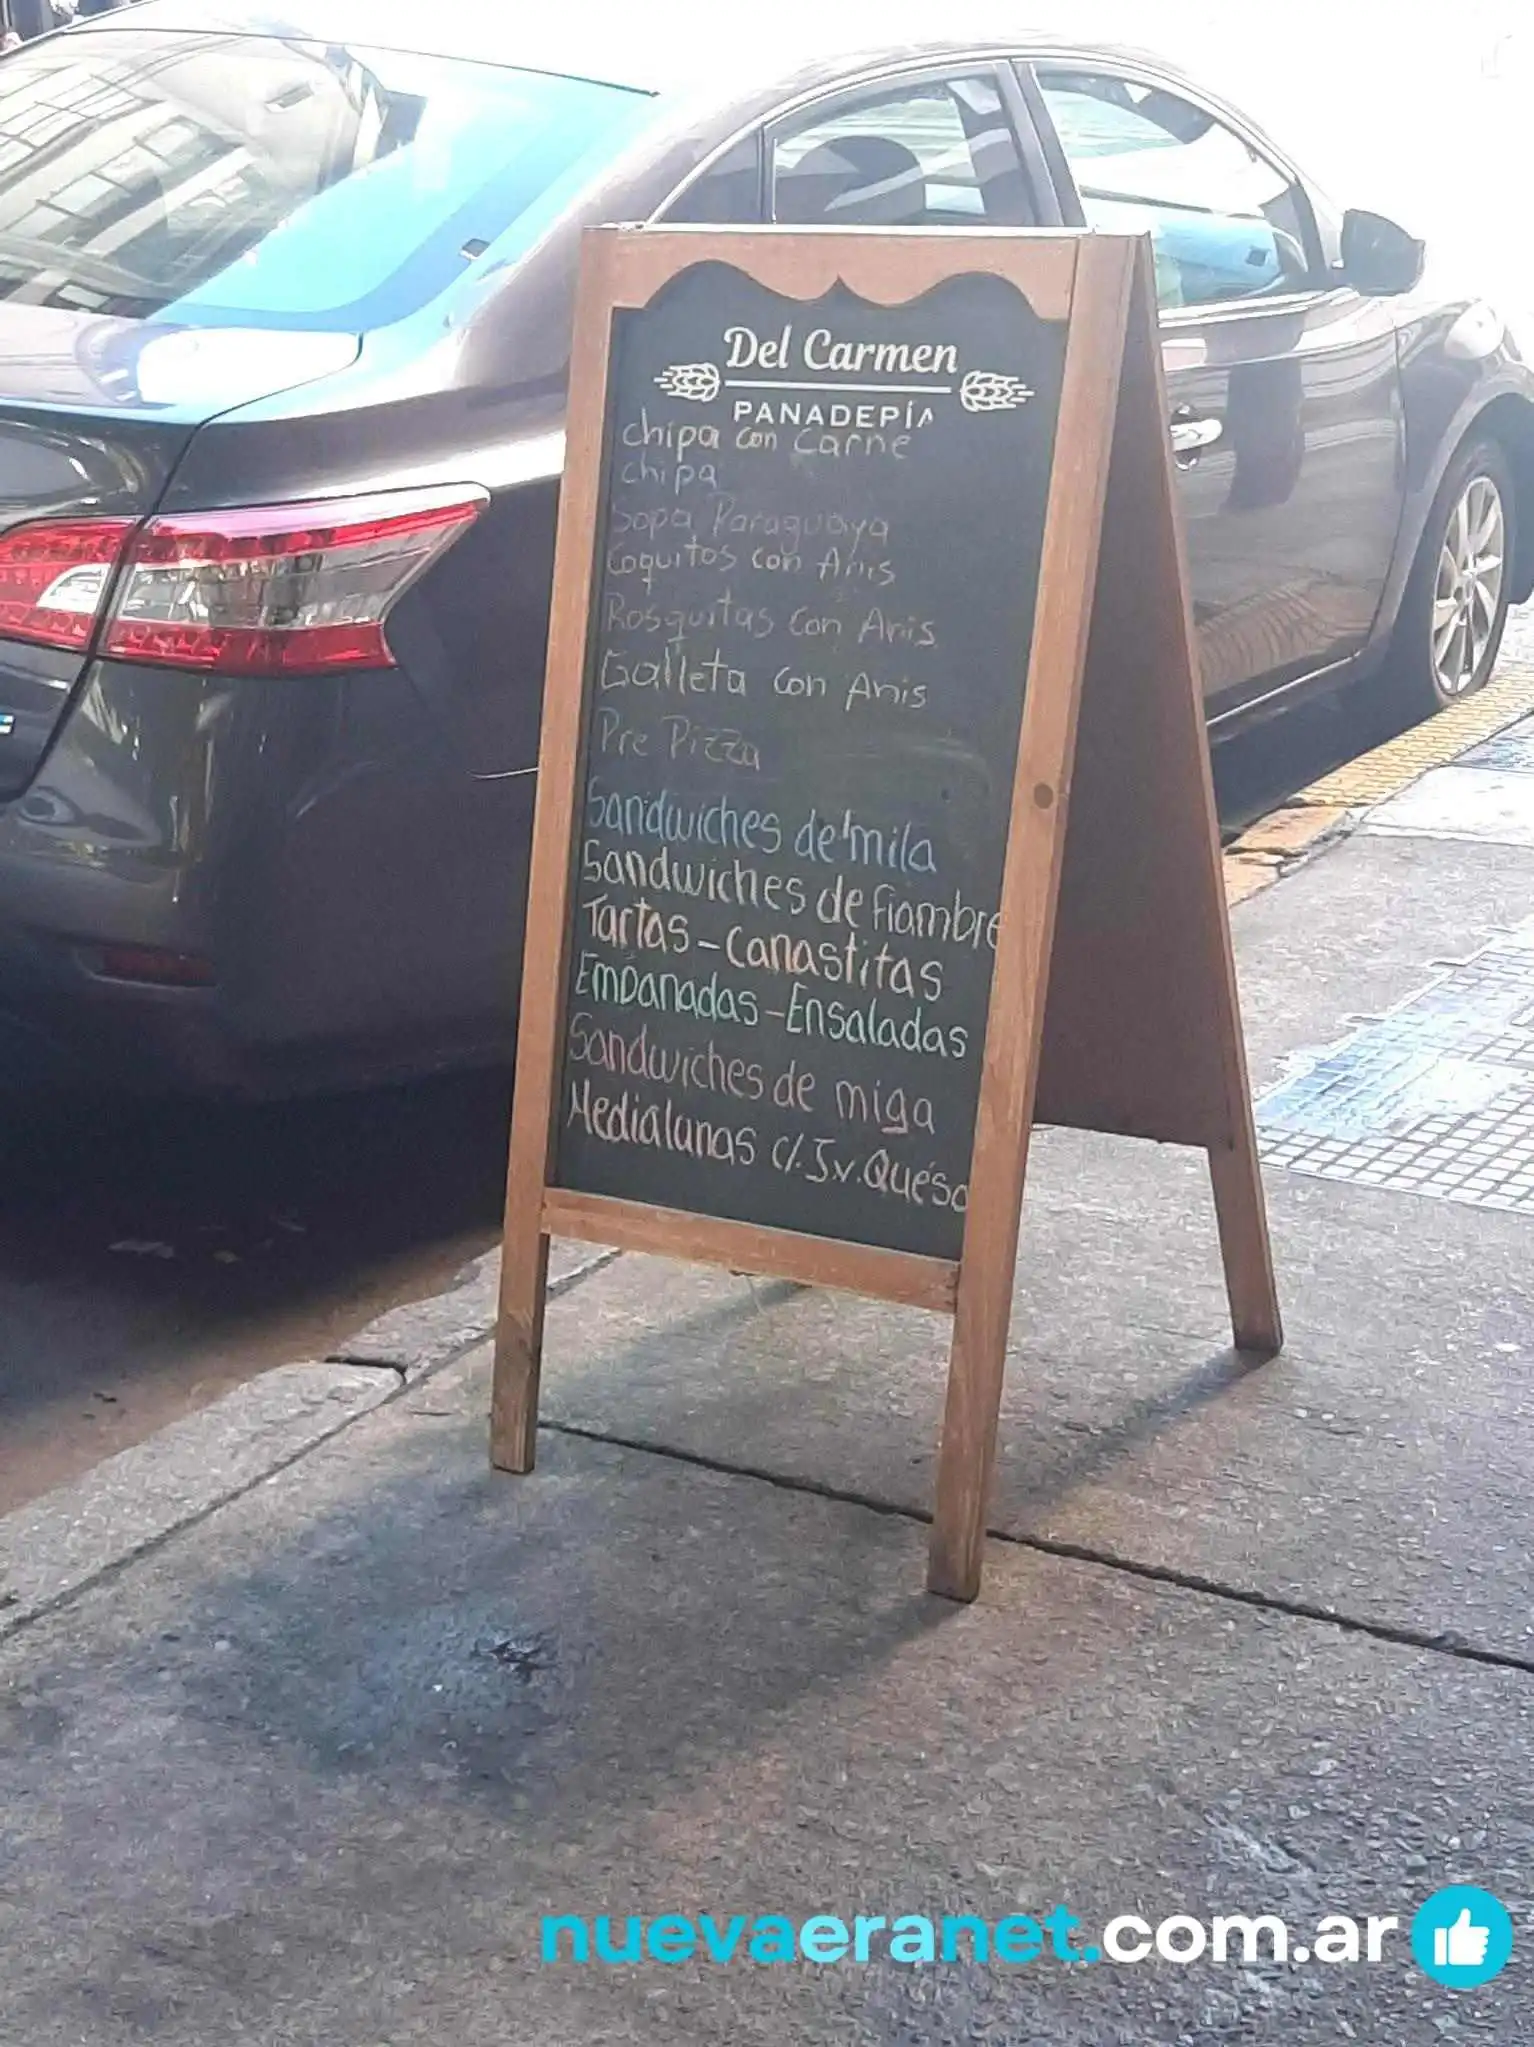 Del Carmen
PANADERÍA
chipa con Carne
chipa
Sopa Paraguaya
Coquitos con Anis
Rosquitas con Anis
Galleta con Anis
Pre Pizza
Sandwiches de mila
Sandwiches de fiambre
Tartas - Canastitas
Empanadas - Ensaladas
Sandwiches de miga
Medialunas c/. J.v. Queso
nuevaeranet.com.ar